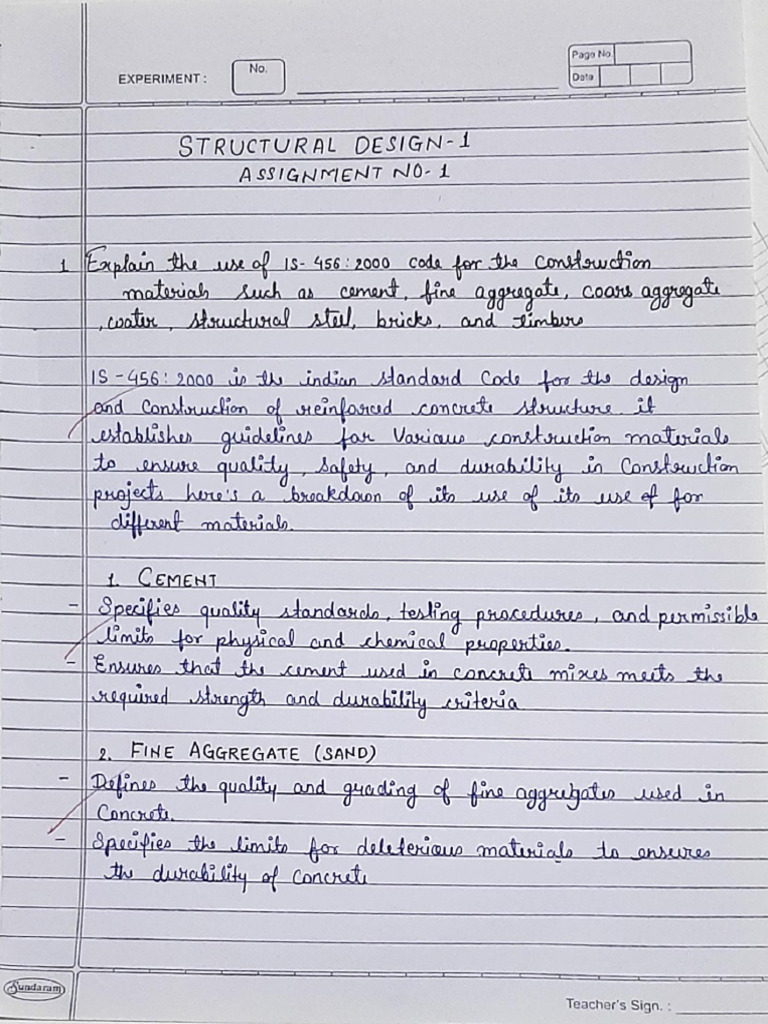 EXPERIMENT :
No.
Page No.
Date
STRUCTURAL DESIGN-1
ASSIGNMENT NO-1
1 Explain the use of IS-456:2000 code for the construction
materials such as cement, fine aggregate, coars aggregate
, water, structural steel, bricks, and timbers
IS-456:2000 is the indian standard Code for the design
and Construction of reinforced concrete structure. it
establishes guidelines for Various construction materials
to ensure quality, safety, and durability in Construction
projects here's a breakdown of its use of its use of for
different materials.
1. CEMENT
- Specifies quality standards, testing procedures, and permissible
limits for physical and chemical properties.
- Ensures that the cement used in concrete mixes meets the
required strength and durability criteria
2. FINE AGGREGATE (SAND)
- Defines the quality and grading of fine aggregates used in
Concrete.
- Specifies the limits for deleterious materials to ensures
the durability of concrete
Sundaram
Teacher's Sign. :